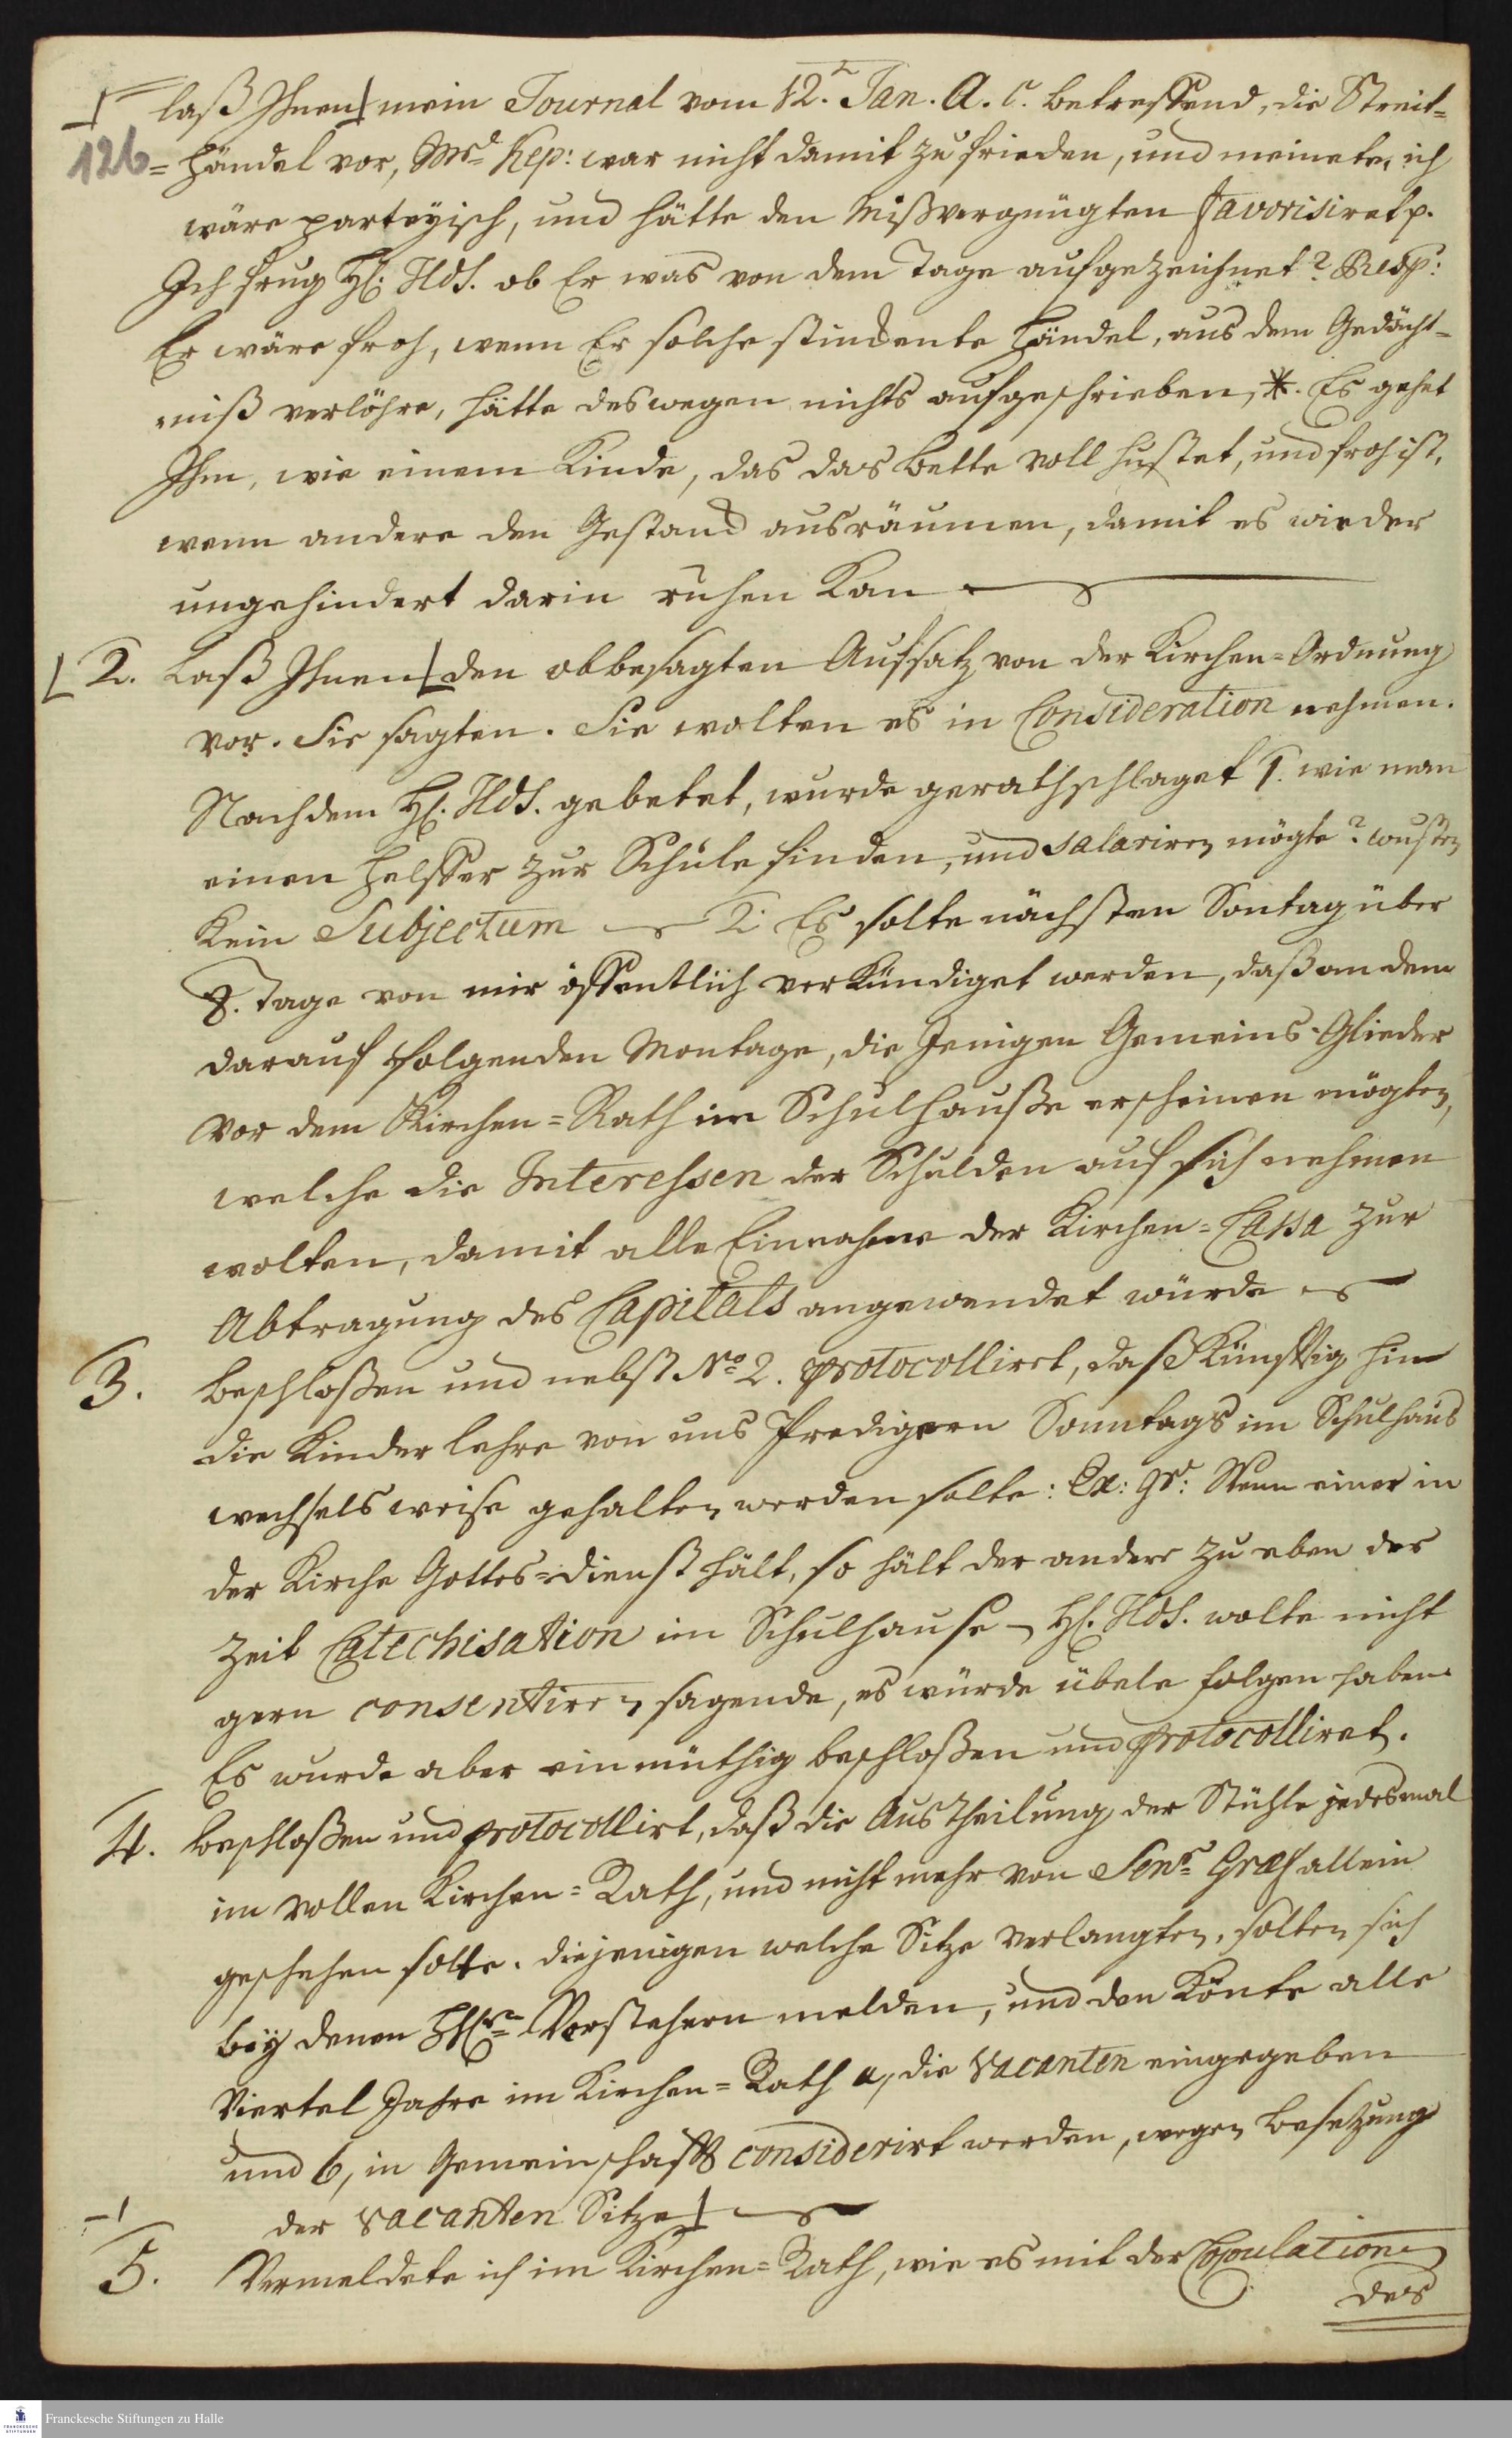 laß Ihnen mein Journal vom 12. Jan. A. C. betreffend, die Streit=
126
=händel vor, Mrs Kep: war nicht damit zufrieden, und meinete, ich
wäre parteyisch, und hätte den Mißvergnügten favorisiret p.
Ich frug H. Hds. ob Er was von dem Tage aufgezeichnet? Resp:
Er wäre froh, wenn Er solche stinckente Händel, aus dem Gedächt=
niß verlöhre, hätte deswegen nichts aufgeschrieben, *. Es gehet
Ihm, wie einem Kinde, das das Bette voll hustet, und froh ist,
wenn andere den Gestand ausräumen, damit es wieder
ungehindert darin ruhen Kan
2. Laß Ihnen den obbesagten Aufsatz von der Kirchen=Ordnung
vor. Sie sagten. Sie wolten es in Consideration nehmen.
Nachdem H. Hds. gebetet, wurde gerathschlaget 1. wie man
einen Helffer zur Schule finden, und salariren mögte? wusten
Kein Subjectum 2. Es solte nächsten Sontag über
8. Tage von mir öffentlich verkündiget werden, daß an dem
darauf folgenden Montage, die Jenigen Gemeins-Glieder
vor dem Kirchen=Rath im Schulhauße erscheinen mögten,
welche die Interessen der Schulden auf sich nehmen
wolten, damit alle Einnahme der Kirchen=Cassa zur
Abtragung des Capitals angewendet würde
3. beschloßen und nebst No 2. protocolliret, daß Künfftig hin
die Kinderlehre von uns Predigern Sonntags im Schulhaus
wechselsweise gehalten werden solte: Ex: gr: Wenn einer in
der Kirche Gottes=dienst hält, so hält der andere zu eben der
Zeit Catechisation im Schulhause – H. Hds. wolte nicht
gern consentiren, sagende, es würde übele folgen haben.
Es wurde aber einmüthig beschloßen und protocolliret.
4. beschloßen und protocollirt, daß die Austheilung der Stühle jedesmal
im vollen Kirchen=Rath, und nicht mehr von Senr Graef allein
geschehen solte. diejenigen welche Sitze verlangten, solten sich
bey denen HH. Vorstehern melden, und den Könte alle
Viertel Jahre im Kirchen=Rath a, die vacanten eingegeben
und b, in Gemeinschafft considerirt werden, wegen besetzung
der vacanten Sitze
5. Vermeldete ich im Kirchen=Rath, wie es mit der Copulation
des
Franckesche Stiftungen zu Halle